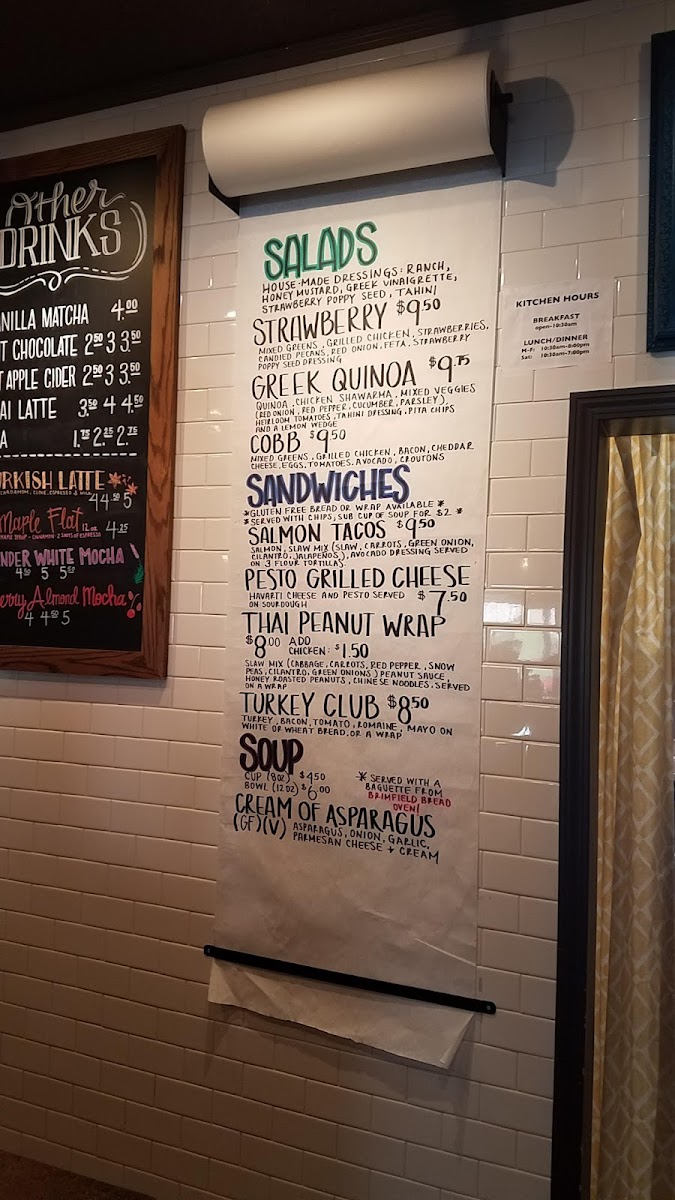 Other
DRINKS
NILLA MATCHA 4.00
T CHOCOLATE 2⁵⁰ 3 3.⁵⁰
T APPLE CIDER 2⁵⁰ 3 3.⁵⁰
AI LATTE 3.⁵⁰ 4 4.⁵⁰
A 1.⁷⁵ 2.²⁵ 2.⁷⁵
URKISH LATTE
4 4.⁵⁰ 5
Maple Flat 12 oz. 4.25
NDER WHITE MOCHA
4⁵⁰ 5 5⁵⁰
erry Almond Mocha
4 4⁵⁰ 5
SALADS
HOUSE-MADE DRESSINGS: RANCH,
HONEY MUSTARD, GREEK VINAIGRETTE,
STRAWBERRY POPPY SEED, TAHINI
STRAWBERRY $9.50
MIXED GREENS, GRILLED CHICKEN, STRAWBERRIES,
CANDIED PECANS, RED ONION, FETA, STRAWBERRY
POPPY SEED DRESSING
GREEK QUINOA $9.75
QUINOA, CHICKEN SHAWARMA, MIXED VEGGIES
(RED ONION, RED PEPPER, CUCUMBER, PARSLEY),
HEIRLOOM TOMATOES, TAHINI DRESSING, PITA CHIPS
AND A LEMON WEDGE
COBB $9.50
MIXED GREENS, GRILLED CHICKEN, BACON, CHEDDAR
CHEESE, EGGS, TOMATOES, AVOCADO, CROUTONS
SANDWICHES
*GLUTEN FREE BREAD OR WRAP AVAILABLE*
*SERVED WITH CHIPS, SUB CUP OF SOUP FOR $2*
SALMON TACOS $9.50
SALMON, SLAW MIX (SLAW, CARROTS, GREEN ONION,
CILANTRO, JALAPEÑOS), AVOCADO DRESSING SERVED
ON 3 FLOUR TORTILLAS
PESTO GRILLED CHEESE
HAVARTI CHEESE AND PESTO SERVED $7.50
ON SOURDOUGH
THAI PEANUT WRAP
$8.00 ADD
CHICKEN: $1.50
SLAW MIX (CABBAGE, CARROTS, RED PEPPER, SNOW
PEAS, CILANTRO, GREEN ONIONS) PEANUT SAUCE,
HONEY ROASTED PEANUTS, CHINESE NOODLES, SERVED
ON A WRAP
TURKEY CLUB $8.50
TURKEY, BACON, TOMATO, ROMAINE, MAYO ON
WHITE OR WHEAT BREAD, OR A WRAP
SOUP
CUP (8OZ) $4.50
BOWL (12OZ) $6.00
* SERVED WITH A
BAGUETTE FROM
BRIMFIELD BREAD
OVEN!
CREAM OF ASPARAGUS
(GF)(V) ASPARAGUS, ONION, GARLIC,
PARMESAN CHEESE + CREAM
KITCHEN HOURS
BREAKFAST
open-10:30am
LUNCH/DINNER
M-F: 10:30am-8:00pm
Sat: 10:30am-7:00pm